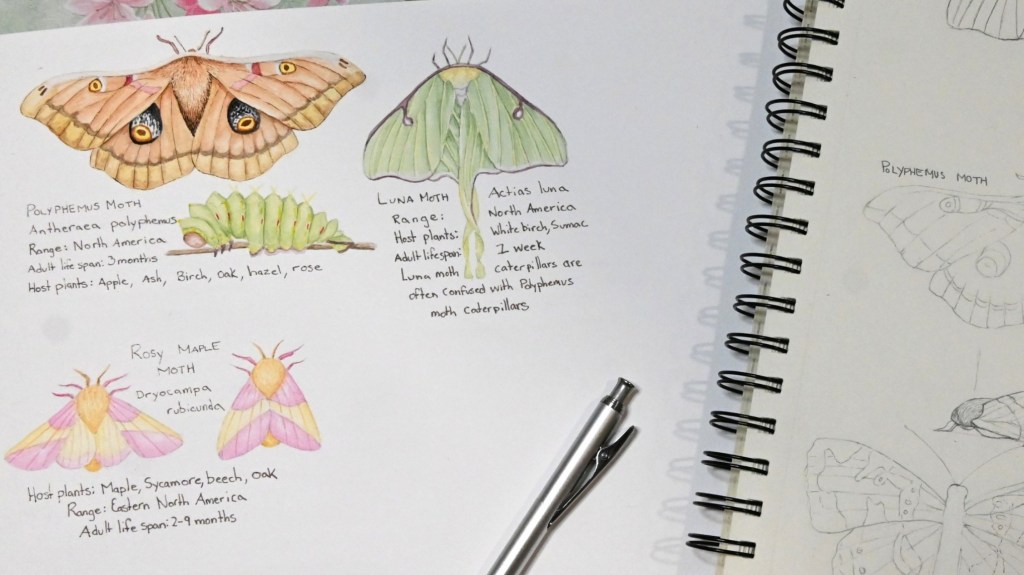 POLYPHEMUS MOTH
Antheraea polyphemus
Range: North America
Adult life span: 3 months
Host plants: Apple, Ash, Birch, oak, hazel, rose
LUNA MOTH Actias luna
Range: North America
Host plants: White birch, Sumac
Adult lifespan: 1 week
Luna moth caterpillars are
often confused with Polyphemus
moth caterpillars
ROSY MAPLE
MOTH
Dryocampa
rubicunda
Host plants: Maple, Sycamore, beech, oak
Range: Eastern North America
Adult life span: 2-9 months
POLYPHEMUS MOTH